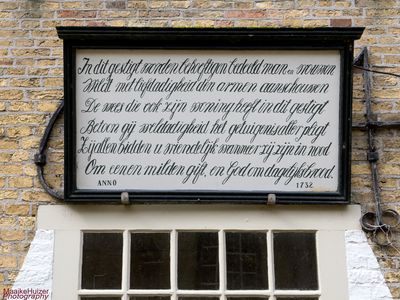 In dit gestigt worden behoeftigen bedeelt man en vrouwen
Wilt met liefdadigheit den armen aanschouwen
De wees die ook zijn woning heeft in dit gestigt
Betoon gij weldadigheit het getuigens aller pligt
Zij allen bidden u vriendelijk wanneer zij zijn in nood
Om eenen milden gift, en God om dagelijks brood.
ANNO 1732
MaaikeHuizer
Photography